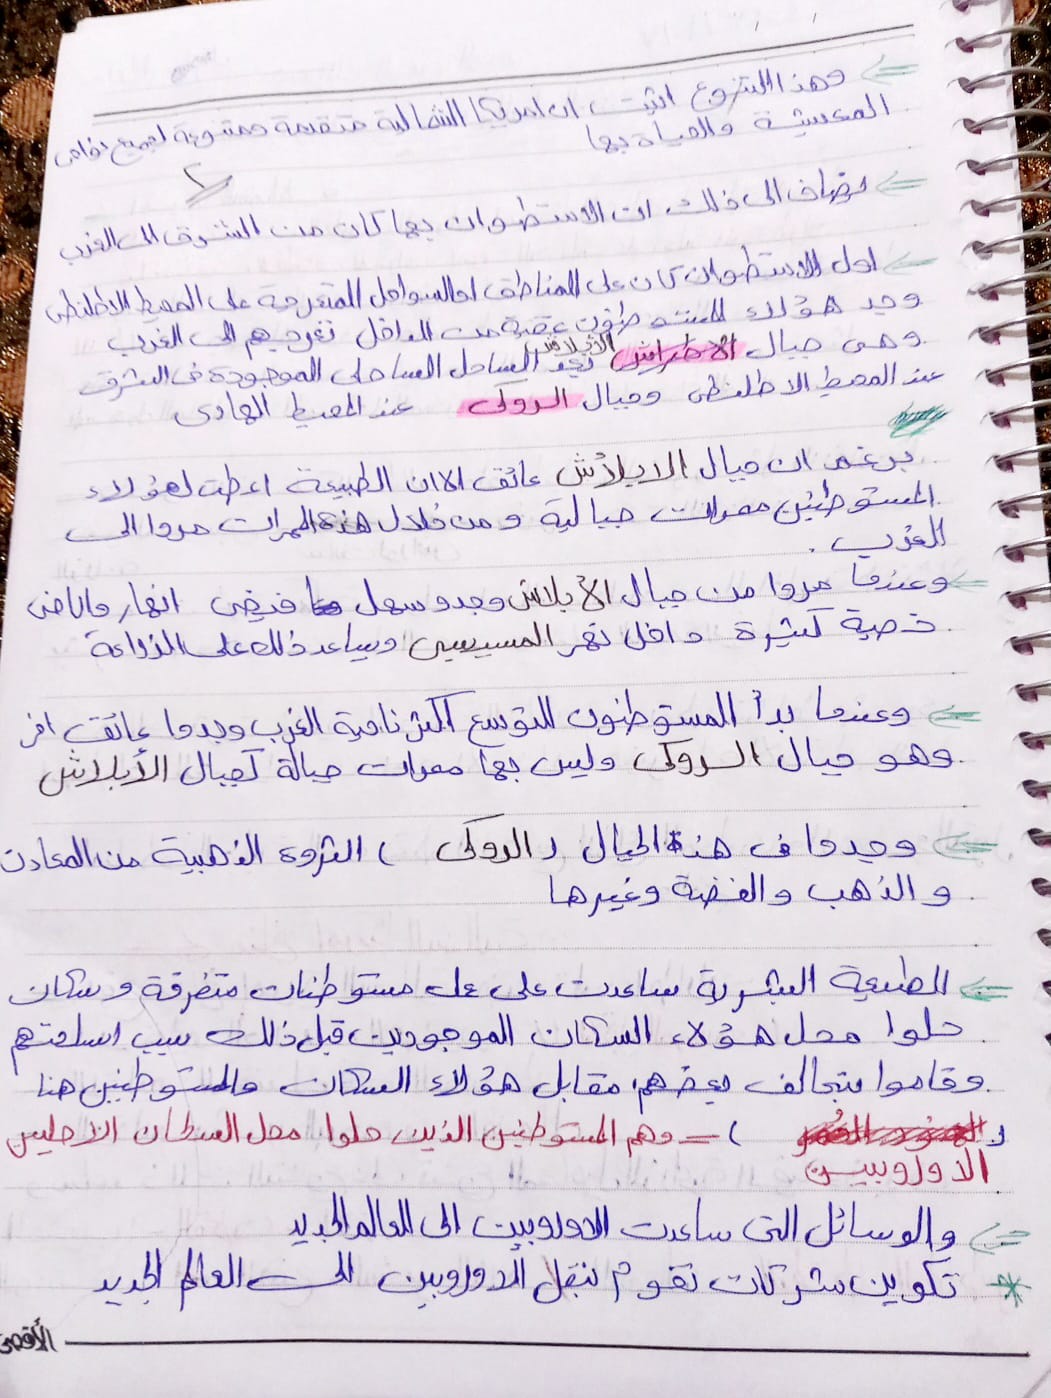 وهذا التنوع اثبت ان امريكا الشمالية متقدمة ومتنوعة لجميع نواحى
المعيشية والحياة بها
يضاف الى ذلك ان الاستطوان بها كان من الشرق الى الغرب
اول الاستطوان كان على المناطق او السواحل المتعرجة على المحيط الاطلنطى
وجد هؤلاء المستوطنون عقبة من الداخل تفرجيهم الى الغرب
وهى جبال الأبلاش نجد الساحل الساحلى الموجودة فى الشرق
عند المحيط الاطلنطى وجبال الروكى عند المحيط الهادى
برغم ان جبال الابلاش عائق الا ان الطبيعة اعطت لهؤلاء
المستوطنين ممرات جبالية ومن خلال هذة الممرات مروا الى
الغرب .
وعندما مروا من جبال الأبلاش وجدو سهل فيضى انهار واراضى
خصبة كثيرة داخل نهر المسيسبى وساعد ذلك على الزراعة
وعندما بدأ المستوطنون للتوسع اكثر ناحية الغرب وجدوا عائق اخر
وهو جبال الروكى وليس بها ممرات جبالة كجبال الأبلاش
وجدوا فى هذة الجبال ( الروكى ) الثروة الذهبية من المعادن
والذهب والفضة وغيرها
الطبيعة البشرية ساعدت على عمل مستوطنات متفرقة وسكان
حلوا محل هؤلاء السكان الموجودين قبل ذلك سبب اسلحتهم
وقاموا بتحالف بعضهم مقابل هؤلاء السكان والمستوطنين هنا
( ) = وهم المستوطنين الذين حلوا محل السكان الاصليين
الاوروبيين
والوسائل التى ساعدت الاوروبين الى العالم الجديد
* تكوين شركات تقوم بنقل الأوروبين الى العالم الجديد